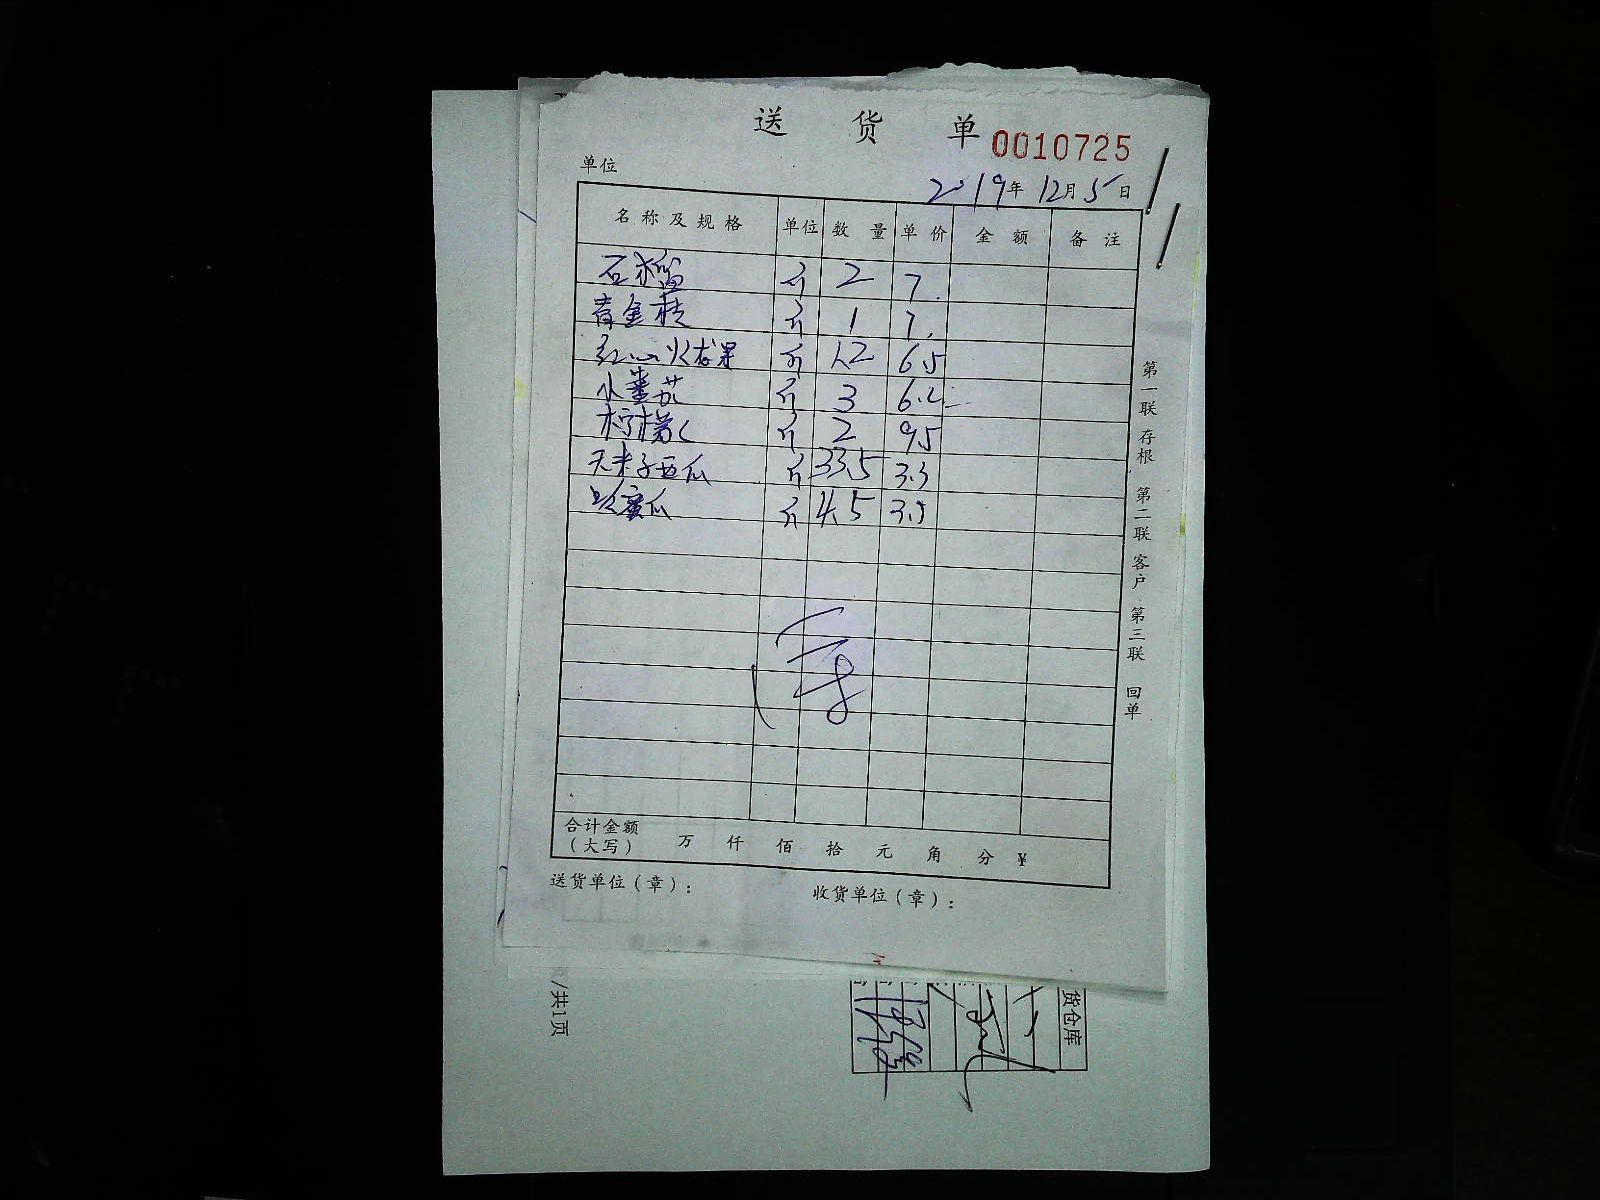 送 货 单 0010725
单位
2019年12月5日
名称及规格 单位 数量 单价 金额 备注
石榴 斤 2 7
青金桔 斤 1 7
红心火龙果 斤 12 6.5
小番茄 斤 3 6.2
柠檬 斤 2 9.5
无米子西瓜 斤 33.5 3.3
蜜瓜 斤 4.5 3.5
合计金额
（大写） 万 仟 佰 拾 元 角 分 ￥
送货单位（章）： 收货单位（章）：
第一联 存根 第二联 客户 第三联 回单
货仓库
/共1页